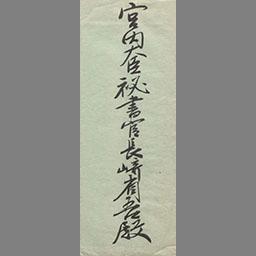 宮内大臣秘書官長崎省吾殿